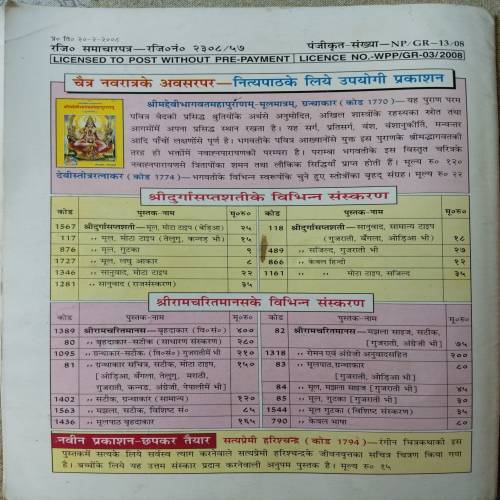 प्र० ति० २०-२-२००८
रजि० समाचारपत्र—रजि०नं० २३०८/५७ पंजीकृत-संख्या—NP/GR-13/08
LICENSED TO POST WITHOUT PRE-PAYMENT LICENCE NO.-WPP/GR-03/2008
चैत्र नवरात्रके अवसरपर—नित्यपाठके लिये उपयोगी प्रकाशन
श्रीमद्देवीभागवतमहापुराणम्-मूलमात्रम्, ग्रन्थाकार (कोड 1770)— यह पुराण परम
पवित्र वेदकी प्रसिद्ध श्रुतियोंके अर्थसे अनुमोदित, अखिल शास्त्रोंके रहस्यका स्रोत तथा
आगमोंमें अपना प्रसिद्ध स्थान रखता है। यह सर्ग, प्रतिसर्ग, वंश, वंशानुकीर्ति, मन्वन्तर
आदि पाँचों लक्षणोंसे पूर्ण है। भगवतीके पवित्र आख्यानोंसे युक्त इस पुराणके श्रीमद्भागवतको
तरह ही भक्तोंमें नवाह्नपारायणकी परम्परा है। पराम्बा भगवतीके इस विस्तृत चरित्रके
नवाह्नपारायणसे त्रितापोंका शमन तथा लौकिक सिद्धियाँ प्राप्त होती हैं। मूल्य रु० १२०
देवीस्तोत्ररत्नाकर (कोड 1774)— भगवतीके विभिन्न स्वरूपोंके चुने हुए स्तोत्रोंका बृहद् संग्रह। मूल्य रु० २२
श्रीदुर्गासप्तशतीके विभिन्न संस्करण
कोड पुस्तक-नाम मू०रु० कोड पुस्तक-नाम मू०रु०
1567 श्रीदुर्गासप्तशती—मूल, मोटा टाइप (बेड़िआ) २५ 118 श्रीदुर्गासप्तशती—सानुवाद, सामान्य टाइप
117 ,, मूल, मोटा टाइप (तेलुगु, कन्नड़ भी) १५ (गुजराती, बँगला, ओड़िआ भी) १८
876 ,, मूल, गुटका ९ 489 ,, सजिल्द, गुजराती भी २७
1727 ,, मूल, लघु आकार ८ 866 ,, केवल हिन्दी १२
1346 ,, सानुवाद, मोटा टाइप २२ 1161 ,, ,, मोटा टाइप, सजिल्द ३५
1281 ,, सानुवाद (राजसंस्करण) ३५
श्रीरामचरितमानसके विभिन्न संस्करण
कोड पुस्तक-नाम मू०रु० कोड पुस्तक-नाम मू०रु०
1389 श्रीरामचरितमानस—बृहदाकार (वि०सं०) ४०० 82 श्रीरामचरितमानस—मझला साइज, सटीक,
80 ,, बृहदाकार-सटीक (साधारण संस्करण) २८० [गुजराती, अंग्रेजी भी] ७५
1095 ,, ग्रन्थाकार-सटीक (वि०सं०) गुजरातीमें भी २१० 1318 ,, रोमन एवं अंग्रेजी अनुवादसहित २००
81 ,, ग्रन्थाकार सचित्र, सटीक, मोटा टाइप, १५० 83 ,, मूलपाठ, ग्रन्थाकार ८०
[ओड़िआ, बँगला, तेलुगु, मराठी, [गुजराती, ओड़िआ भी]
गुजराती, कन्नड़, अंग्रेजी, नेपालीमें भी] 84 ,, मूल, मझला साइज [गुजराती भी] ४५
1402 ,, सटीक, ग्रन्थाकार (सामान्य) १२० 85 ,, मूल, गुटका [गुजराती भी] ३०
1563 ,, मझला, सटीक, विशिष्ट सं० ८५ 1544 ,, मूल गुटका (विशिष्ट संस्करण) ३५
1436 ,, मूलपाठ बृहदाकार १६५ 790 ,, केवल भाषा ८०
नवीन प्रकाशन-छपकर तैयार सत्यप्रेमी हरिश्चन्द्र (कोड 1794)—रंगीन चित्रकथाकी इस
पुस्तकमें सत्यके लिये सर्वस्व त्याग करनेवाले सत्यप्रेमी हरिश्चन्द्रके जीवनवृत्तका सचित्र चित्रण किया गया
है। बच्चोंके लिये यह उत्तम संस्कार प्रदान करनेवाली अनुपम पुस्तक है। मूल्य रु० १५